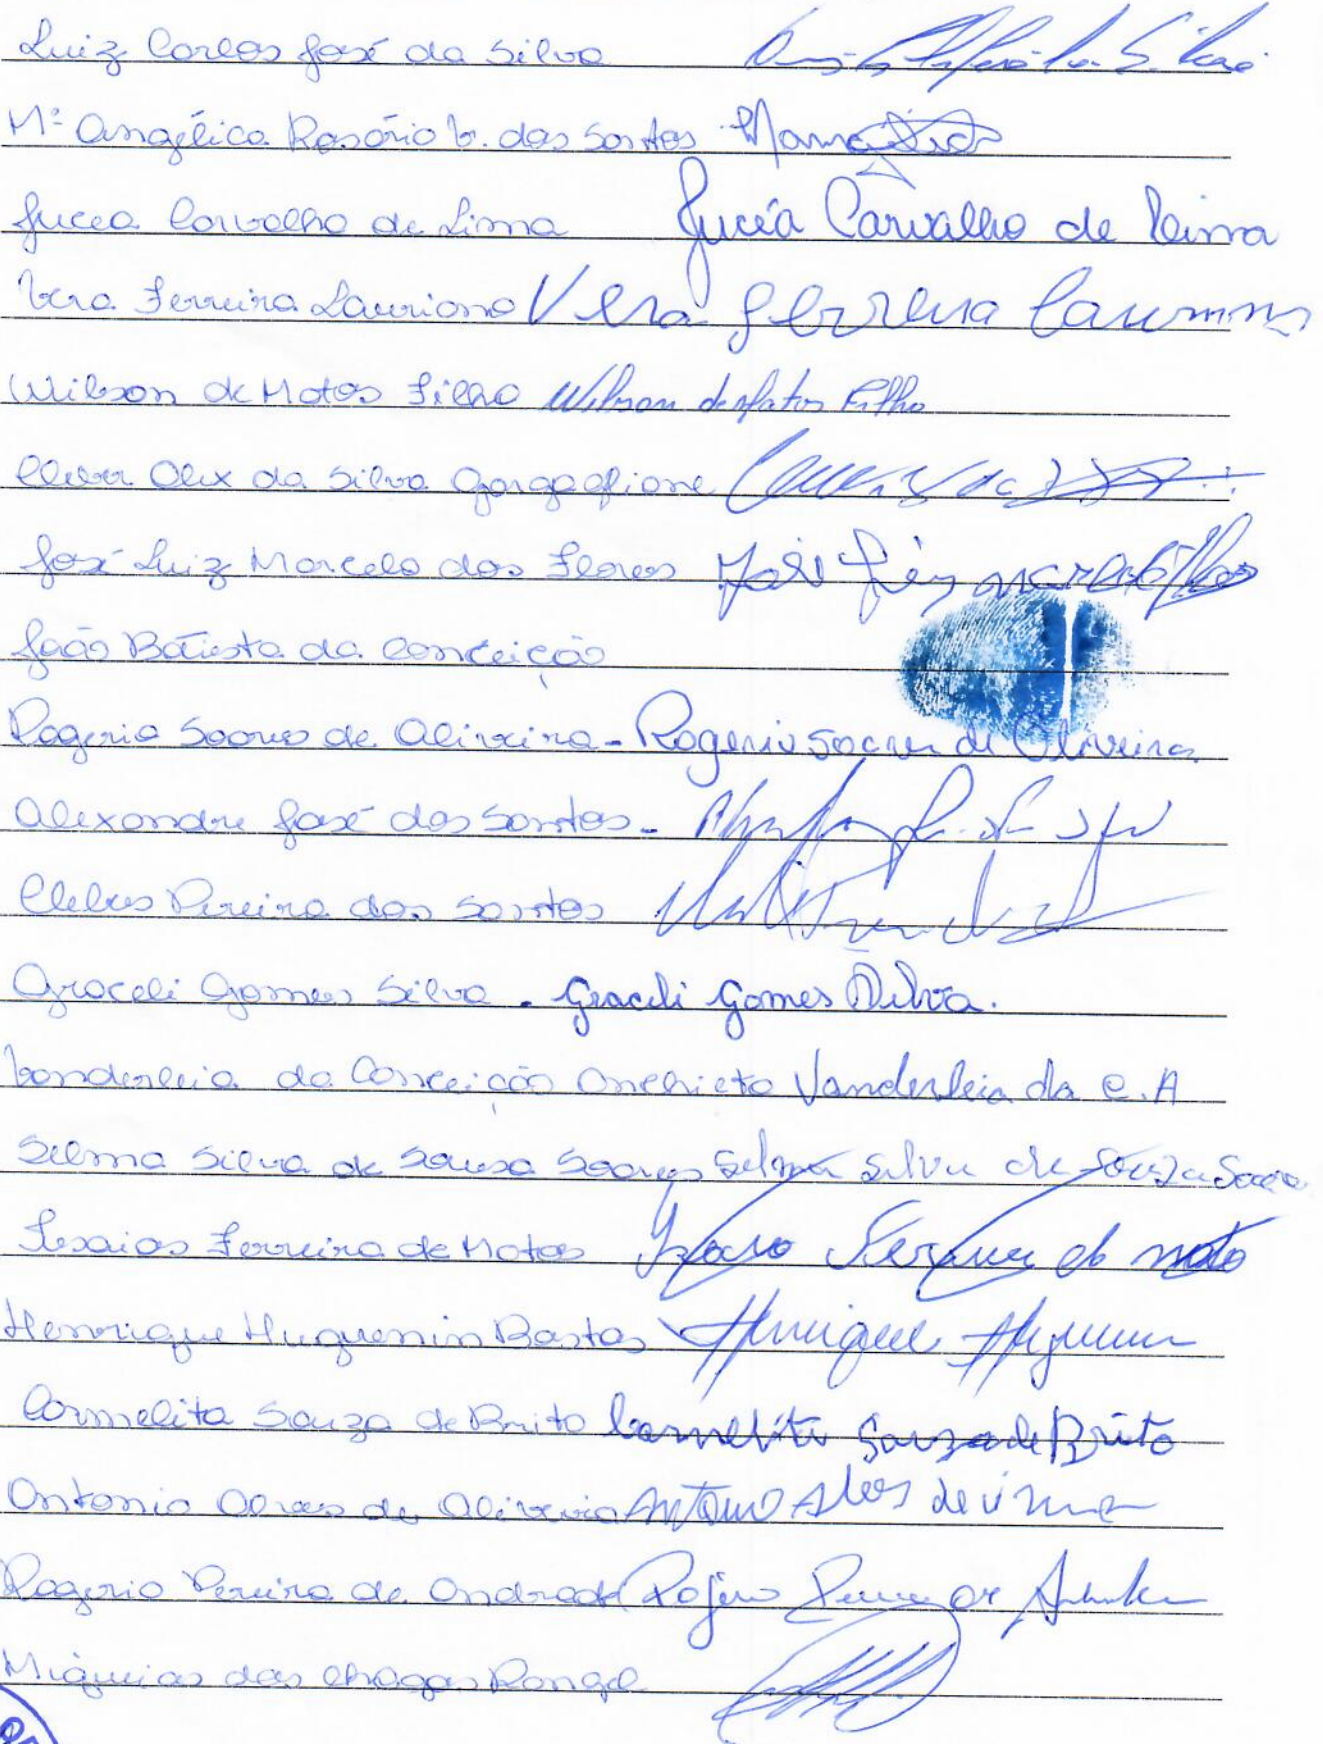 Luiz Carlos José da Silva
Mª Angélica Rosário V. dos Santos Maria
Jucéa Carvalho de Lima Jucéa Carvalho de Lima
Vera Ferreira Lauriano Vera Ferreira
Wilson de Matos Filho Wilson de Matos Filho
Cleber Alex da Silva Gargaglione
José Luiz Marcelo das Flores José Luiz Marcelo
João Batista da Conceição
Rogerio Soares de Oliveira - Rogerio Soares de Oliveira
Alexandre José dos Santos -
Clebes Pereira dos Santos
Graceli Gomes Silva - Graceli Gomes Silva.
Vanderleia da Conceição Anchieta Vanderleia da C. A
Selma Silva de Sousa Soares Selma Silva de Souza
Isaias Ferreira de Matos
Henrique Huguenin Bastos Henrique
Carmelita Souza de Brito Carmelita Souza de Brito
Antonio Alves de Oliveira Antonio Alves
Rogerio Pereira de Andrade
Miqueias das Chagas Rangel